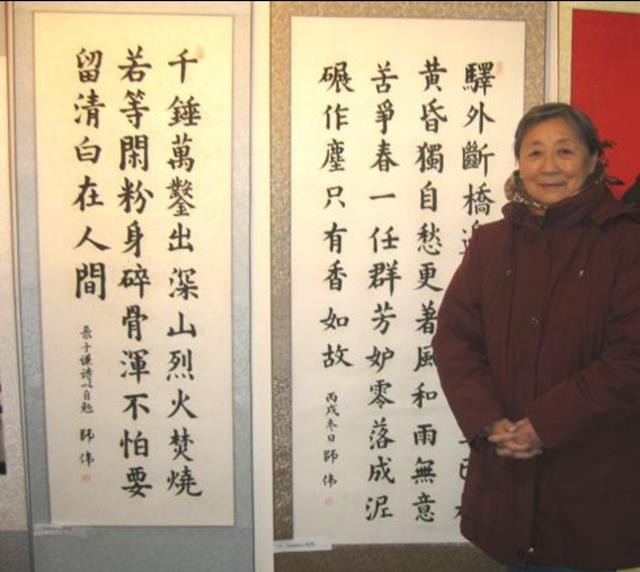 驛外斷橋
黃昏獨自愁更著風和雨無意
苦爭春一任群芳妒零落成泥
碾作塵只有香如故
丙戌冬日 師偉
千錘萬鑿出深山烈火焚燒
若等閑粉身碎骨渾不怕要
留清白在人間
录于謙詩以自勉 師偉